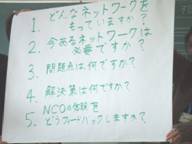 1. どんなネットワークを
もっていますか?
2. 今あるネットワークは
必要ですか?
3. 問題点は何ですか?
4. 解決策は何ですか?
5. NCOの体験を
どうフィードバックしますか?